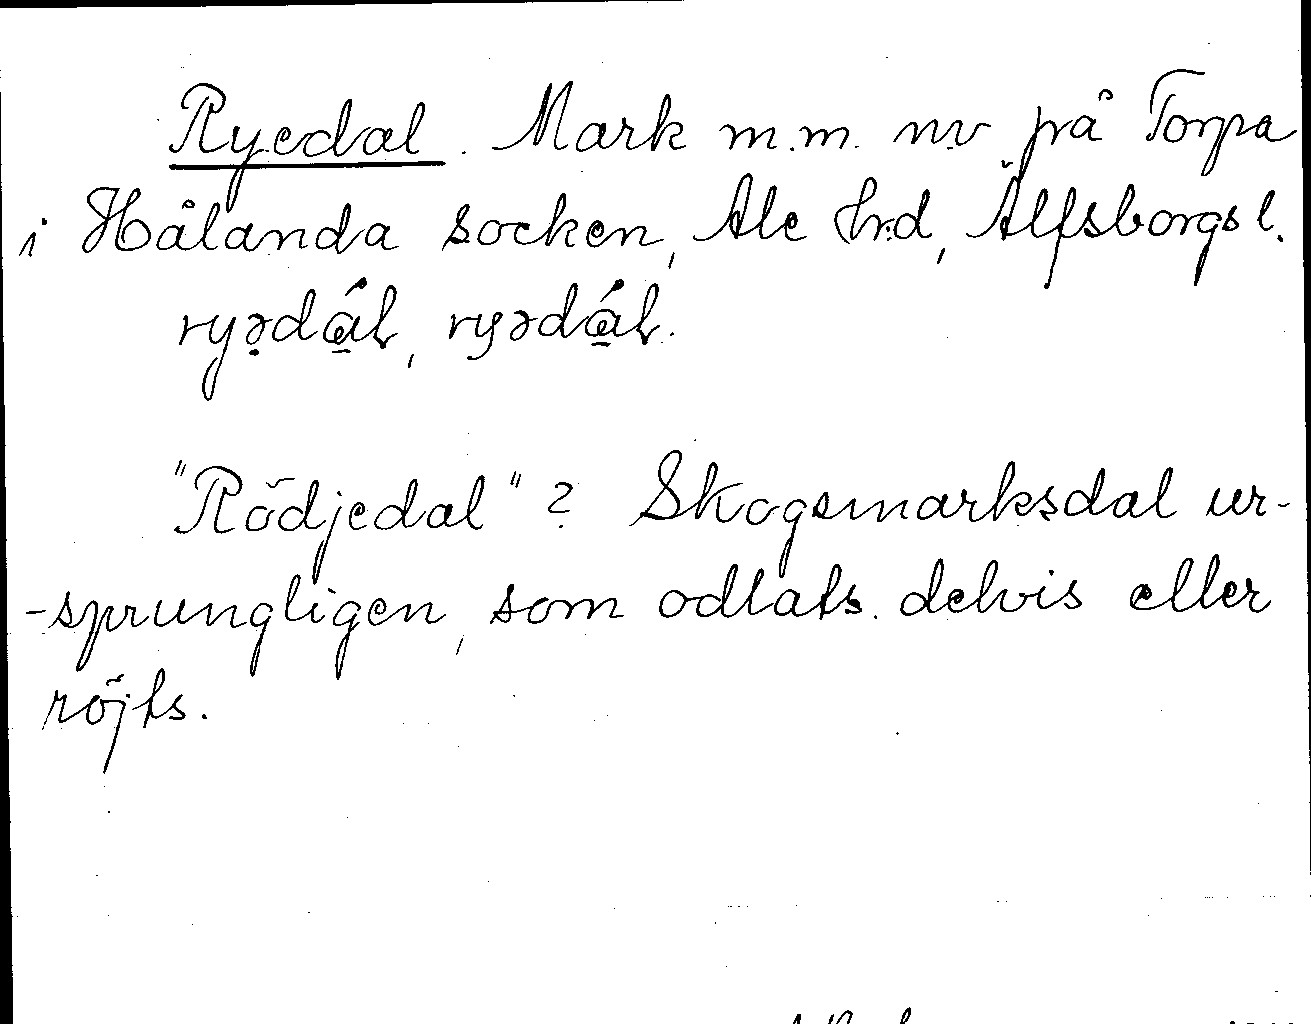 Ryedal. Mark m.m. nv på Torpa
i Hålanda socken, Ale hrd, Älfsborgs l.
ryədál, ryədál.
"Rödjedal"? Skogsmarksdal ur-
-sprungligen, som odlats delvis eller
röjts.